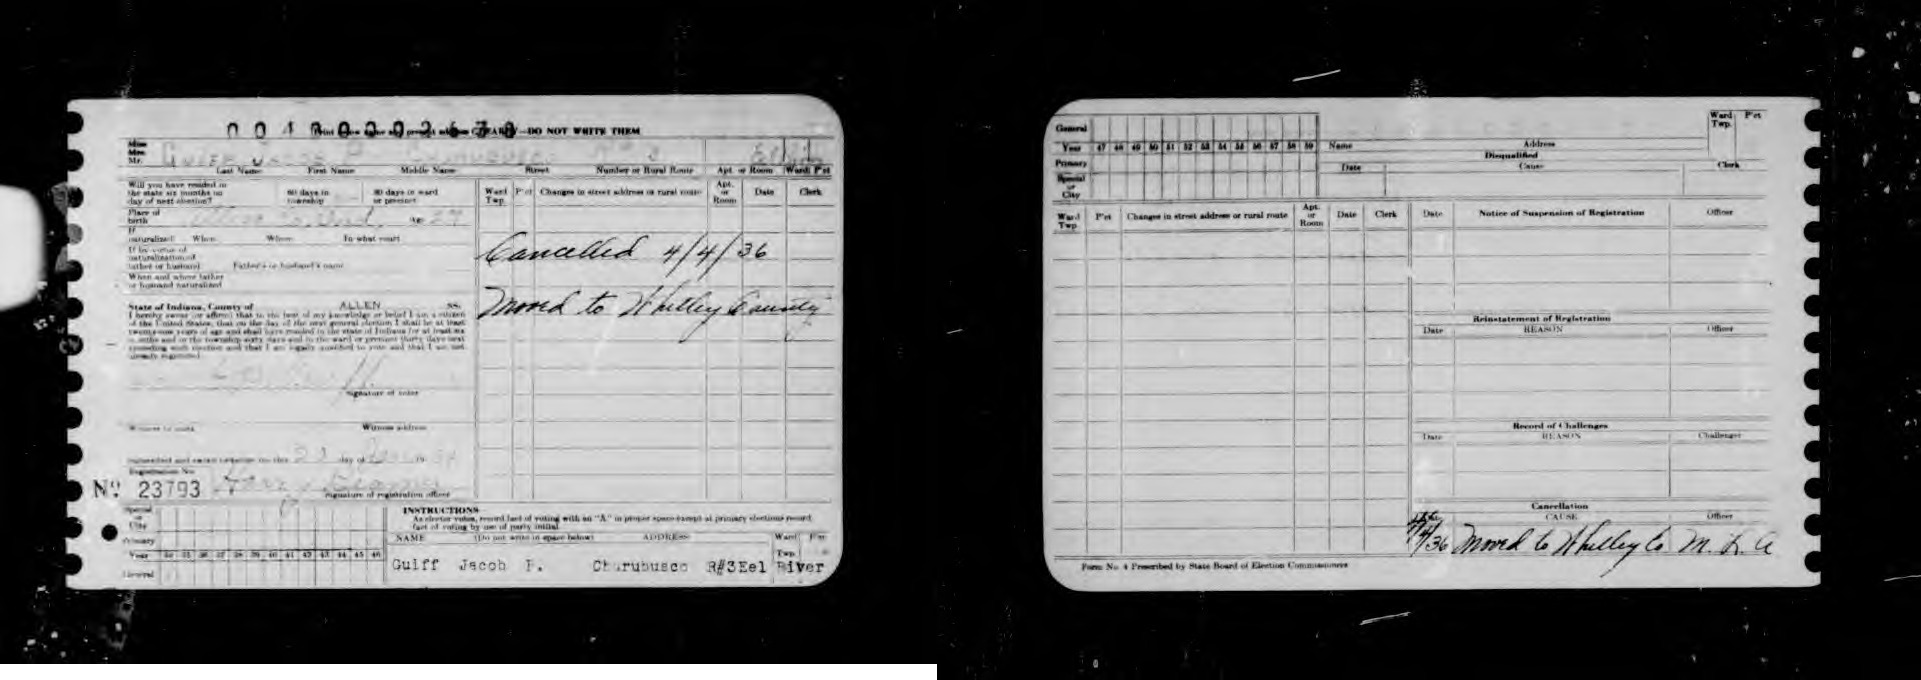 Print name and present address CLEARLY—DO NOT WRITE THEM
Miss
Mrs.
Mr.
Last Name First Name Middle Name Street Number or Rural Route Apt. or Room Ward P'ct
Will you have resided in
the state six months on
day of next election?
60 days in
township
30 days in ward
or precinct
Place of
birth
Age 27
If
naturalized When Where In what court
If by virtue of
naturalization of
father or husband Father's or husband's name
When and where father
or husband naturalized
State of Indiana, County of ALLEN ss.
I hereby swear (or affirm) that to the best of my knowledge or belief I am a citizen
of the United States, that on the day of the next general election I shall be at least
twenty-one years of age and shall have resided in the state of Indiana for at least six
months and in the township sixty days and in the ward or precinct thirty days next
preceding such election and that I am legally qualified to vote and that I am not
already registered.
Signature of voter
Witness to mark Witness address
Subscribed and sworn to before me this day of 19
Registration No.
No. 23793
Signature of registration officer
Ward
Twp.
P'ct Changes in street address or rural route
Apt.
or
Room
Date Clerk
Cancelled 4/4/36
Moved to Whitley County
Special
or
City
Primary
Year 34 35 36 37 38 39 40 41 42 43 44 45 46
General
INSTRUCTIONS
As elector votes, record fact of voting with an "A" in proper space except at primary elections record
fact of voting by use of party initial.
NAME (Do not write in space below) ADDRESS Ward P'ct
Twp.
Guiff Jacob P. Churubusco R#3 Eel River
General
Year 47 48 49 50 51 52 53 54 55 56 57 58 59
Primary
Special
or
City
Name Address
Ward
Twp.
P'ct
Disqualified
Date Cause Clerk
Ward
Twp.
P'ct Changes in street address or rural route
Apt.
or
Room
Date Clerk
Date Notice of Suspension of Registration Officer
Reinstatement of Registration
Date REASON Officer
Record of Challenges
Date REASON Challenger
Cancellation
CAUSE Officer
4/4/36 Moved to Whitley Co M. L. A
Form No. 4 Prescribed by State Board of Election Commissioners